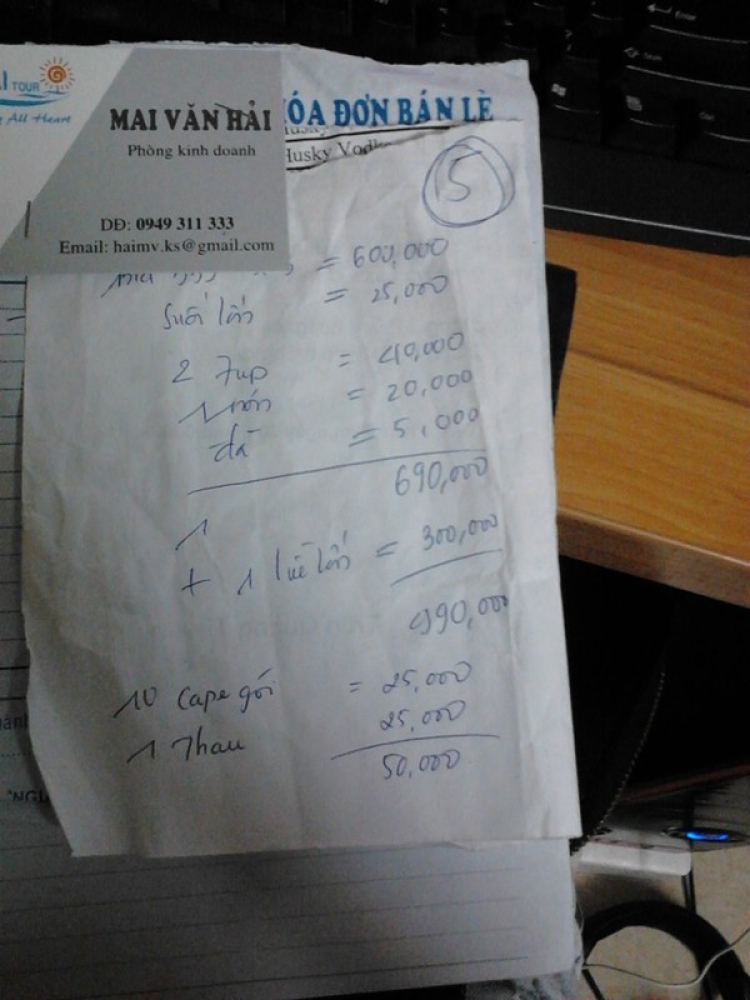 I TOUR
All Heart
MAI VĂN HẢI
Phòng kinh doanh
DĐ: 0949 311 333
Email: haimv.ks@gmail.com
ÓA ĐƠN BÁN LẺ
Husky Vodk
5
= 600,000
Suối lớn = 25,000
2 7up = 40,000
= 20,000
đá = 5,000
690,000
1
+ 1 lớn = 300,000
990,000
10 cape gói = 25,000
1 Thau 25,000
50,000